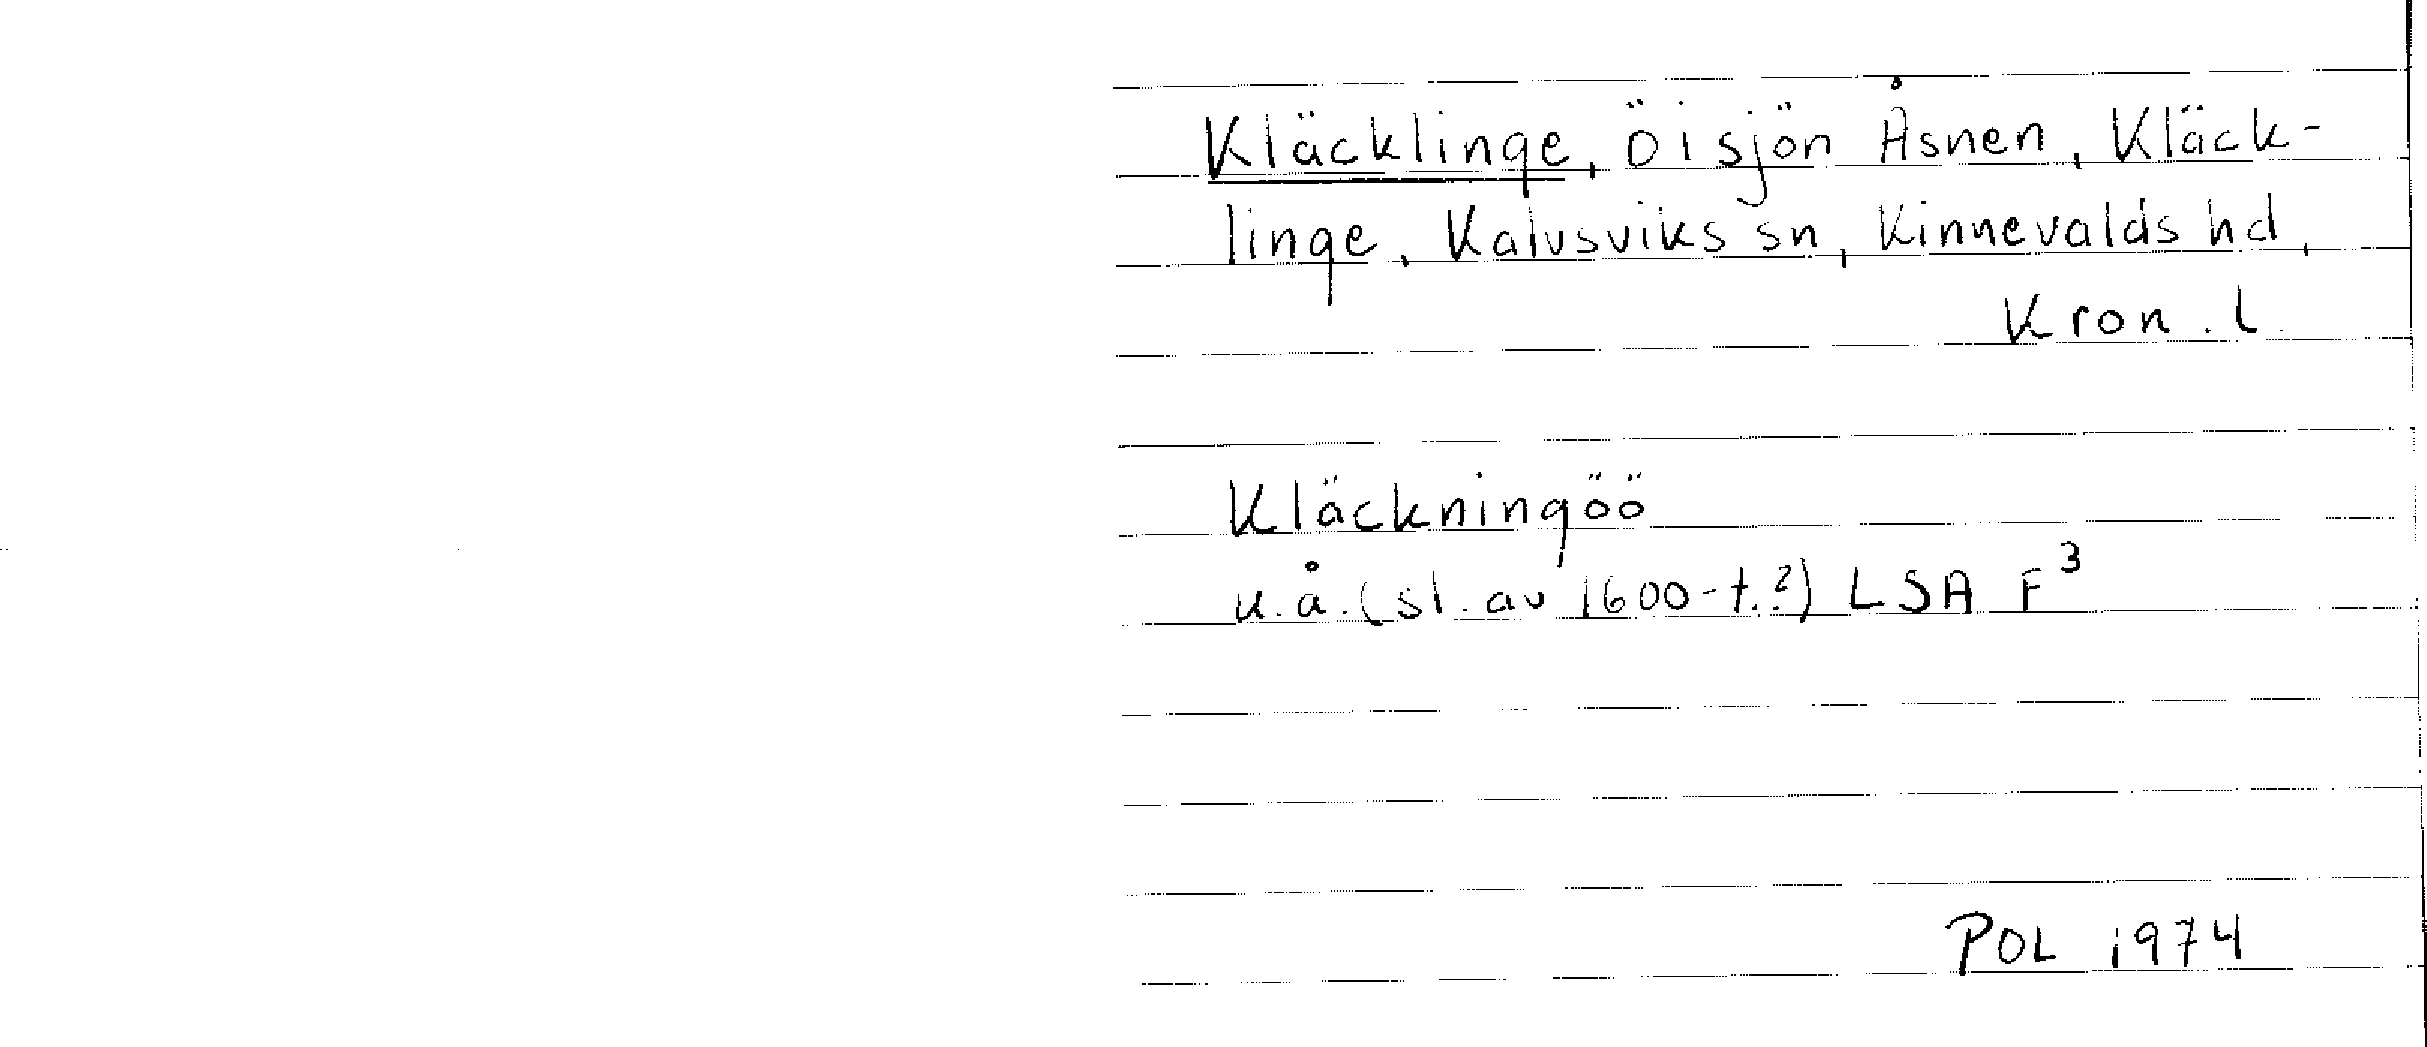 Kläcklinge, ö i sjön Åsnen, Kläck-
linge, Kalvsviks sn, Kinnevalds hd,
Kron. l.
Kläckningöö
u.å. (sl. av 1600-t.?) LSA F³
POL 1974